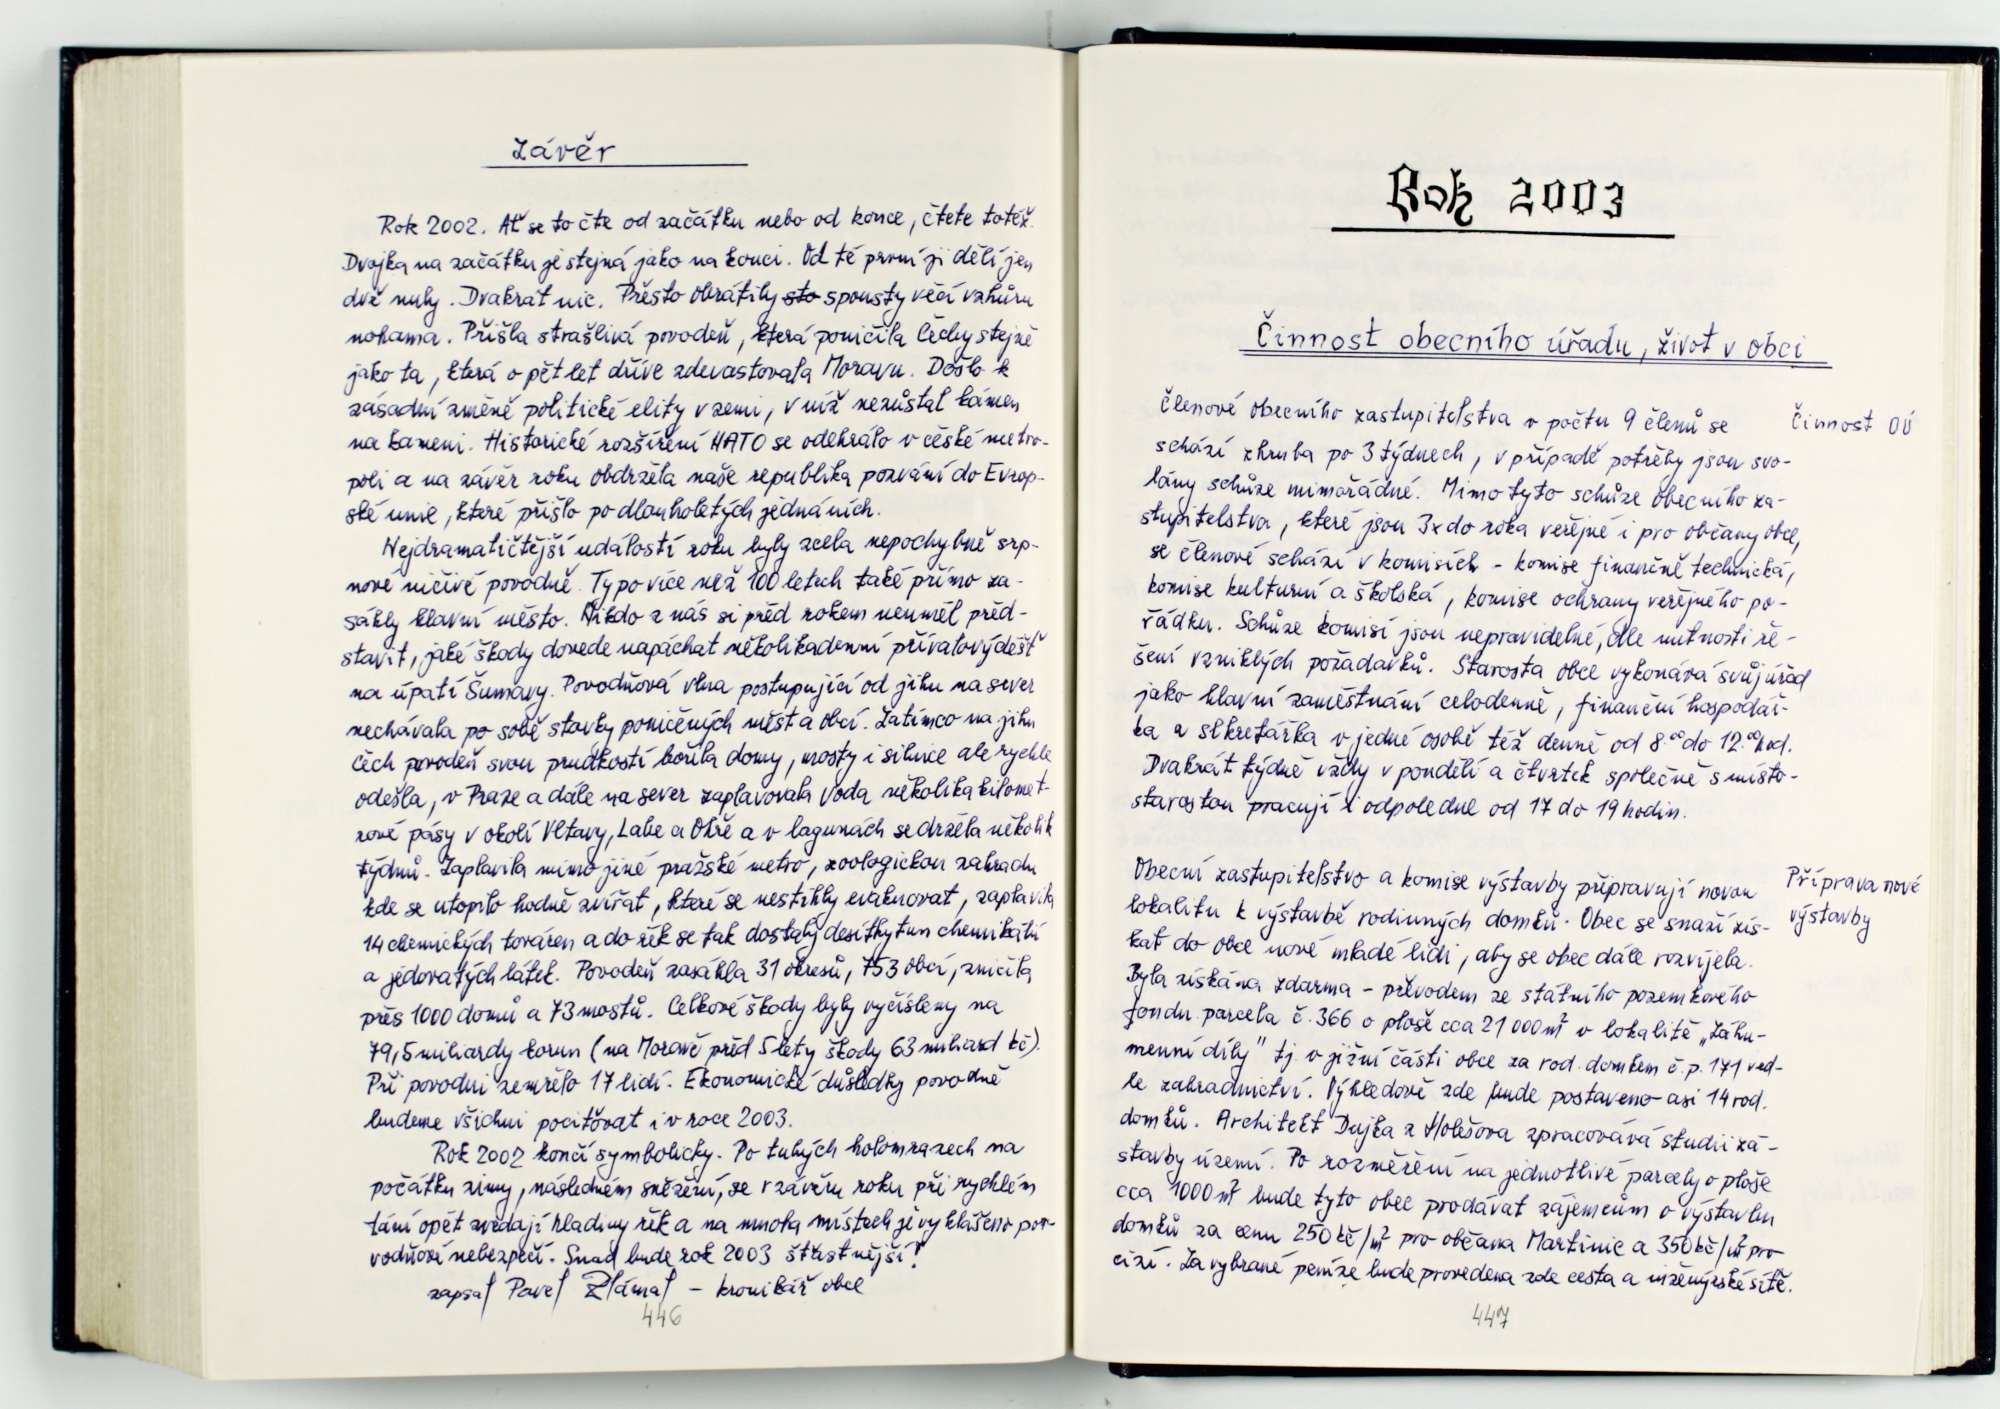 Závěr
Rok 2002. Ať se to čte od začátku nebo od konce, čtete totéž.
Dvojka na začátku je stejná jako na konci. Od té první ji dělí jen
dvě nuly. Dvakrát nic. Přesto obrátily sto spousty věcí vzhůru
nohama. Přišla strašlivá povodeň, která poničila Čechy stejně
jako ta, která o pět let dříve zdevastovala Moravu. Došlo k
zásadní změně politické elity v zemi, v níž nezůstal kámen
na kameni. Historické rozšíření NATO se odehrálo v české metro-
poli a na závěr roku obdržela naše republika pozvání do Evrop-
ské unie, které přišlo po dlouholetých jednáních.
Nejdramatičtější událostí roku byly zcela nepochybně srp-
nové ničivé povodně. Ty po více než 100 letech také přímo za-
sáhly hlavní město. Nikdo z nás si před rokem neuměl před-
stavit, jaké škody dovede napáchat několikadenní přívalový déšť
na úpatí Šumavy. Povodňová vlna postupující od jihu na sever
nechávala po sobě stavby poničených měst a obcí. Zatímco na jihu
Čech povodeň svou prudkostí bořila domy, mosty i silnice ale rychle
odešla, v Praze a dále na sever zaplavovala voda několika kilomet-
rové pásy v okolí Vltavy, Labe a Ohře a v lagunách se držela několik
týdnů. Zaplavila mimo jiné pražské metro, zoologickou zahradu
kde se utopilo hodně zvířat, které se nestihly evakuovat, zaplavila
14 chemických továren a do řek se tak dostaly desítky tun chemikálií
a jedovatých látek. Povodeň zasáhla 31 okresů, 753 obcí, zničila
přes 1000 domů a 73 mostů. Celkové škody byly vyčísleny na
79,5 miliardy korun (na Moravě před 5 lety škody 63 miliard kč).
Při povodni zemřelo 17 lidí. Ekonomické důsledky povodně
budeme všichni pociťovat i v roce 2003.
Rok 2002 končí symbolicky. Po tuhých holomrazech na
počátku zimy, následném sněžení, se v závěru roku při rychlém
tání opět zvedají hladiny řek a na mnoha místech je vyhlášeno po-
vodňové nebezpečí. Snad bude rok 2003 šťastnější!
zapsal Pavel Zlámal - kronikář obce
446
Rok 2003
Činnost obecního úřadu, život v obci
Členové obecního zastupitelstva v počtu 9 členů se
Činnost OÚ
schází zhruba po 3 týdnech, v případě potřeby jsou svo-
lány schůze mimořádné. Mimo tyto schůze obecního za-
stupitelstva, které jsou 3x do roka veřejné i pro občany obce,
se členové schází v komisích - komise finančně technická,
komise kulturní a školská, komise ochrany veřejného po-
řádku. Schůze komisí jsou nepravidelné, dle nutnosti ře-
šení vzniklých požadavků. Starosta obce vykonává svůj úřad
jako hlavní zaměstnání celodenně, finanční hospodář-
ka a sekretářka v jedné osobě též denně od 8.00 do 12.00 hod.
Dvakrát týdně vždy v pondělí a čtvrtek společně s místo-
starostou pracují i odpoledne od 17 do 19 hodin.
Obecní zastupitelstvo a komise výstavby připravují novou
Příprava nové
výstavby
lokalitu k výstavbě rodinných domků. Obec se snaží zís-
kat do obce nové mladé lidi, aby se obec dále rozvíjela.
Byla získána zdarma - převodem ze státního pozemkového
fondu parcela č. 366 o ploše cca 21 000 m² v lokalitě „Záhu-
menní díly" tj. v jižní části obce za rod. domkem č.p. 171 ved-
le zahradnictví. Výhledově zde bude postaveno asi 14 rod.
domků. Architekt Dujka z Holešova zpracovává studii zá-
stavby území. Po rozměření na jednotlivé parcely o ploše
cca 1000 m² bude tyto obec prodávat zájemcům o výstavbu
domků za cenu 250 kč/m² pro občana Martinic a 350 kč/m² pro
cizí. Za vybrané peníze bude provedena zde cesta a inženýrské sítě.
447